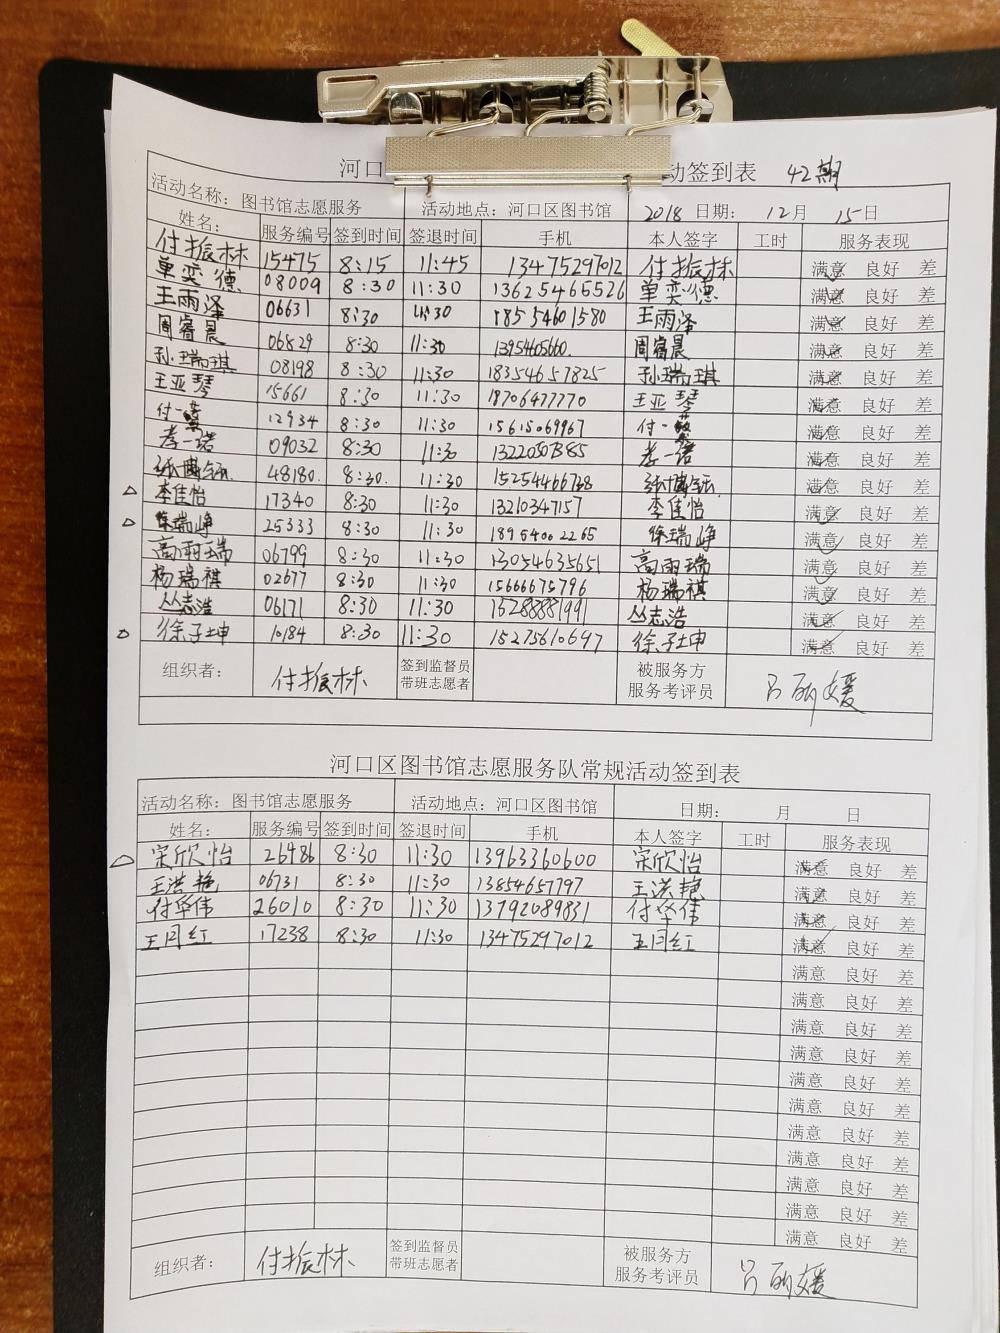 河口 动签到表 42期
活动名称：图书馆志愿服务 活动地点：河口区图书馆 2018 日期： 12月 15日
姓名： 服务编号 签到时间 签退时间 手机 本人签字 工时 服务表现
付振林 15475 8:15 11:45 13475297012 付振林 满意 良好 差
单奕德 08009 8:30 11:30 13625465526 单奕德 满意 良好 差
王雨泽 06631 8:30 11:30 18554601580 王雨泽 满意 良好 差
周睿晨 06829 8:30 11:30 1395460560. 周睿晨 满意 良好 差
孙瑞琪 08198 8:30 11:30 18354657825 孙瑞琪 满意 良好 差
王亚琴 15661 8:30 11:30 18706477770 王亚琴 满意 良好 差
付一 12934 8:30 11:30 15615069967 付一 满意 良好 差
李一诺 09032 8:30 11:30 满意 良好 差
48180. 8:30. 11:30 满意 良好 差
李佳怡 17340 8:30 11:30 13210347157 李佳怡 满意 良好 差
徐瑞峥 25333 8:30 11:30 18954062265 徐瑞峥 满意 良好 差
高雨瑞 06799 8:30 11:30 13054635651 高雨瑞 满意 良好 差
杨瑞祺 02677 8:30 11:30 15666675796 杨瑞祺 满意 良好 差
丛志浩 06171 8:30 11:30 丛志浩 满意 良好 差
徐子坤 10184 8:30 11:30 15275610697 徐子坤 满意 良好 差
组织者： 付振林 签到监督员 被服务方 吕丽媛
带班志愿者 服务考评员
河口区图书馆志愿服务队常规活动签到表
活动名称：图书馆志愿服务 活动地点：河口区图书馆 日期： 月 日
姓名： 服务编号 签到时间 签退时间 手机 本人签字 工时 服务表现
宋欣怡 26486 8:30 11:30 13963360600 宋欣怡 满意 良好 差
王洪艳 06731 8:30 11:30 13854657797 王洪艳 满意 良好 差
付华伟 26010 8:30 11:30 13792089831 付华伟 满意 良好 差
王月红 17238 8:30 11:30 13475297012 王月红 满意 良好 差
满意 良好 差
满意 良好 差
满意 良好 差
满意 良好 差
满意 良好 差
满意 良好 差
满意 良好 差
满意 良好 差
满意 良好 差
满意 良好 差
满意 良好 差
组织者： 付振林 签到监督员 被服务方 吕丽媛
带班志愿者 服务考评员